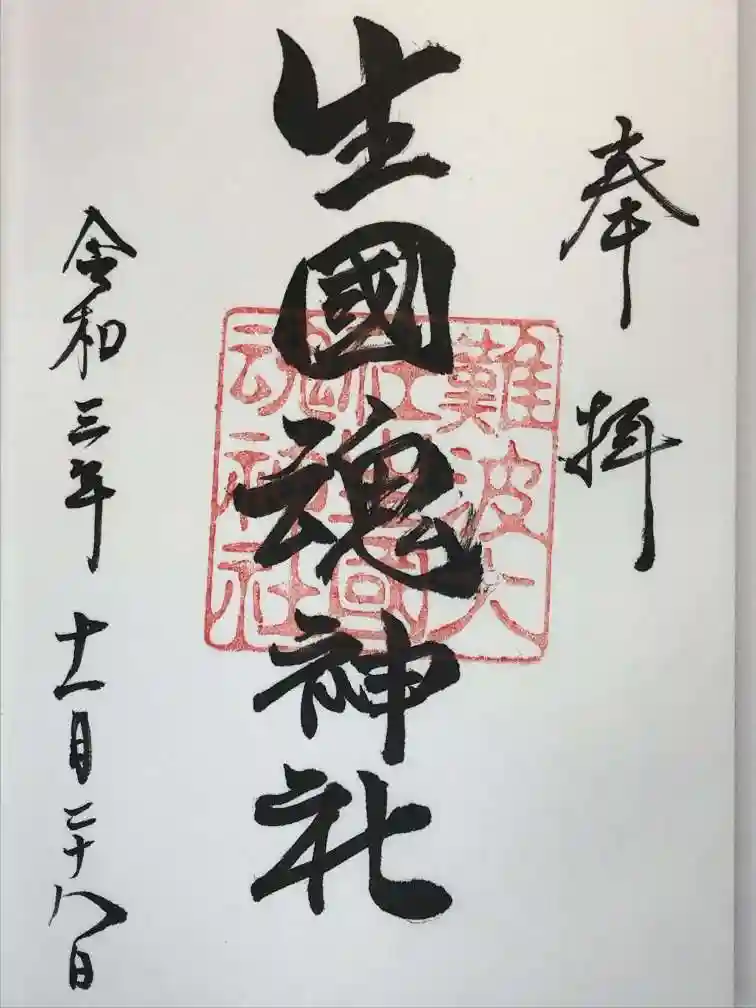 奉拝
生國魂神社
難波大
社生國
魂神社
令和三年 十一月二十八日